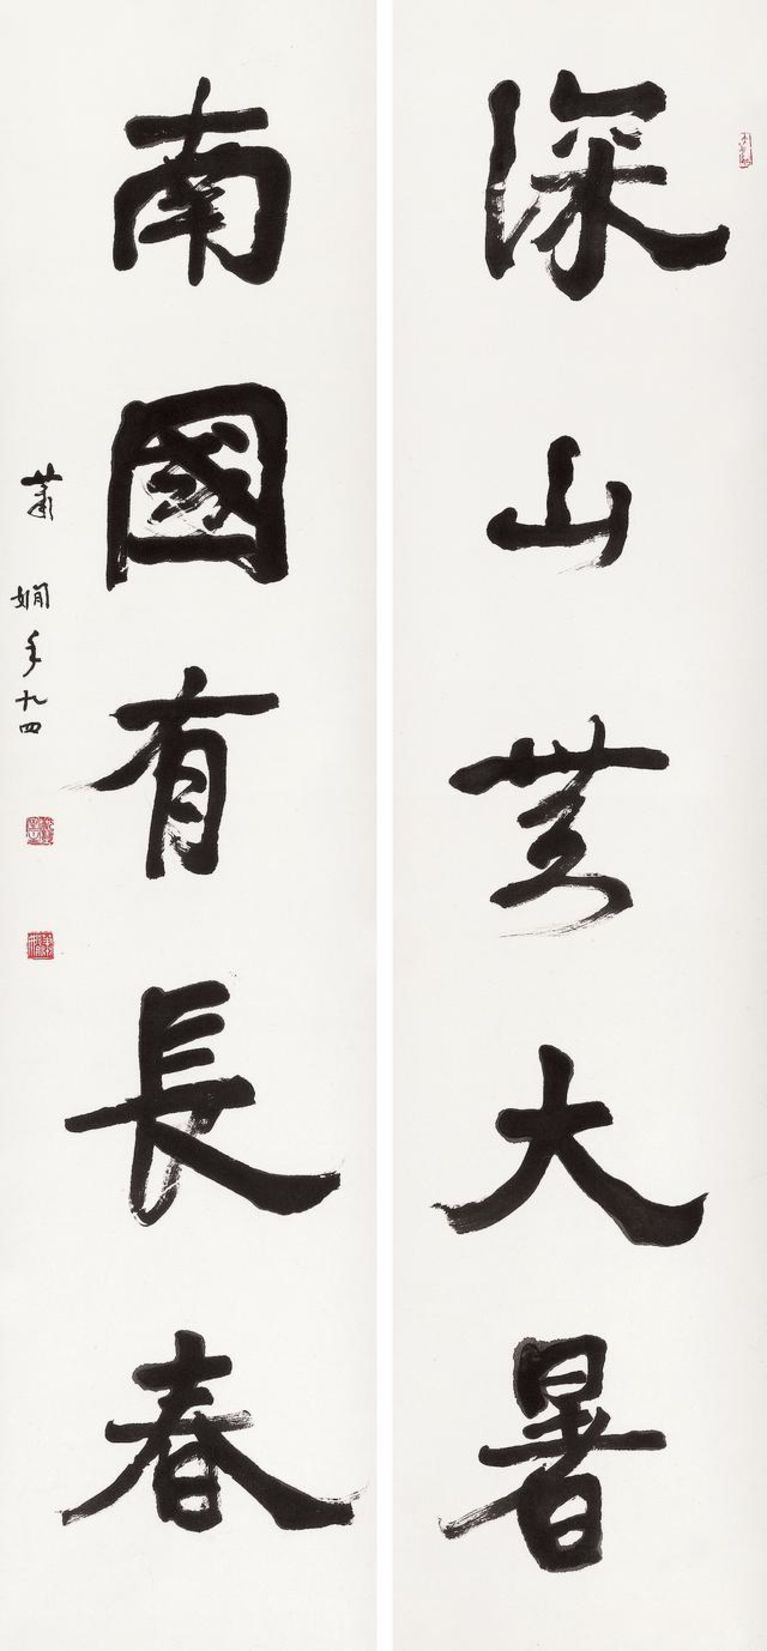 深山無大暑
南國有長春
蕭嫻年九四